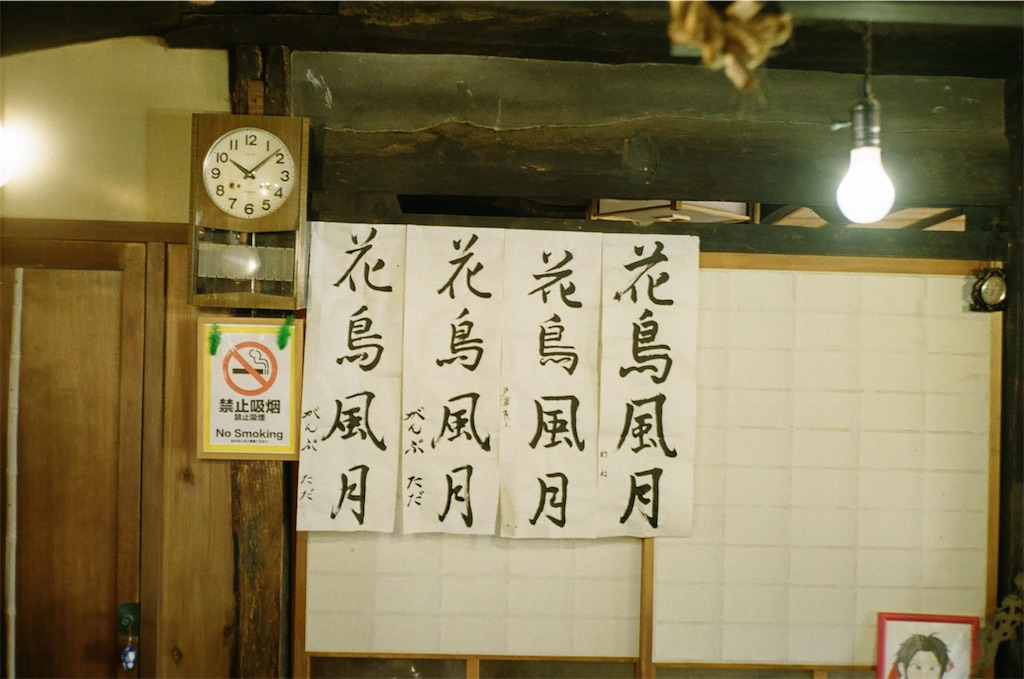 12
1
2
3
4
5
6
7
8
9
10
11
禁止吸烟
禁止吸煙
No Smoking
花鳥風月
がんぶ ただ
花鳥風月
がんぶ ただ
花鳥風月
花鳥風月